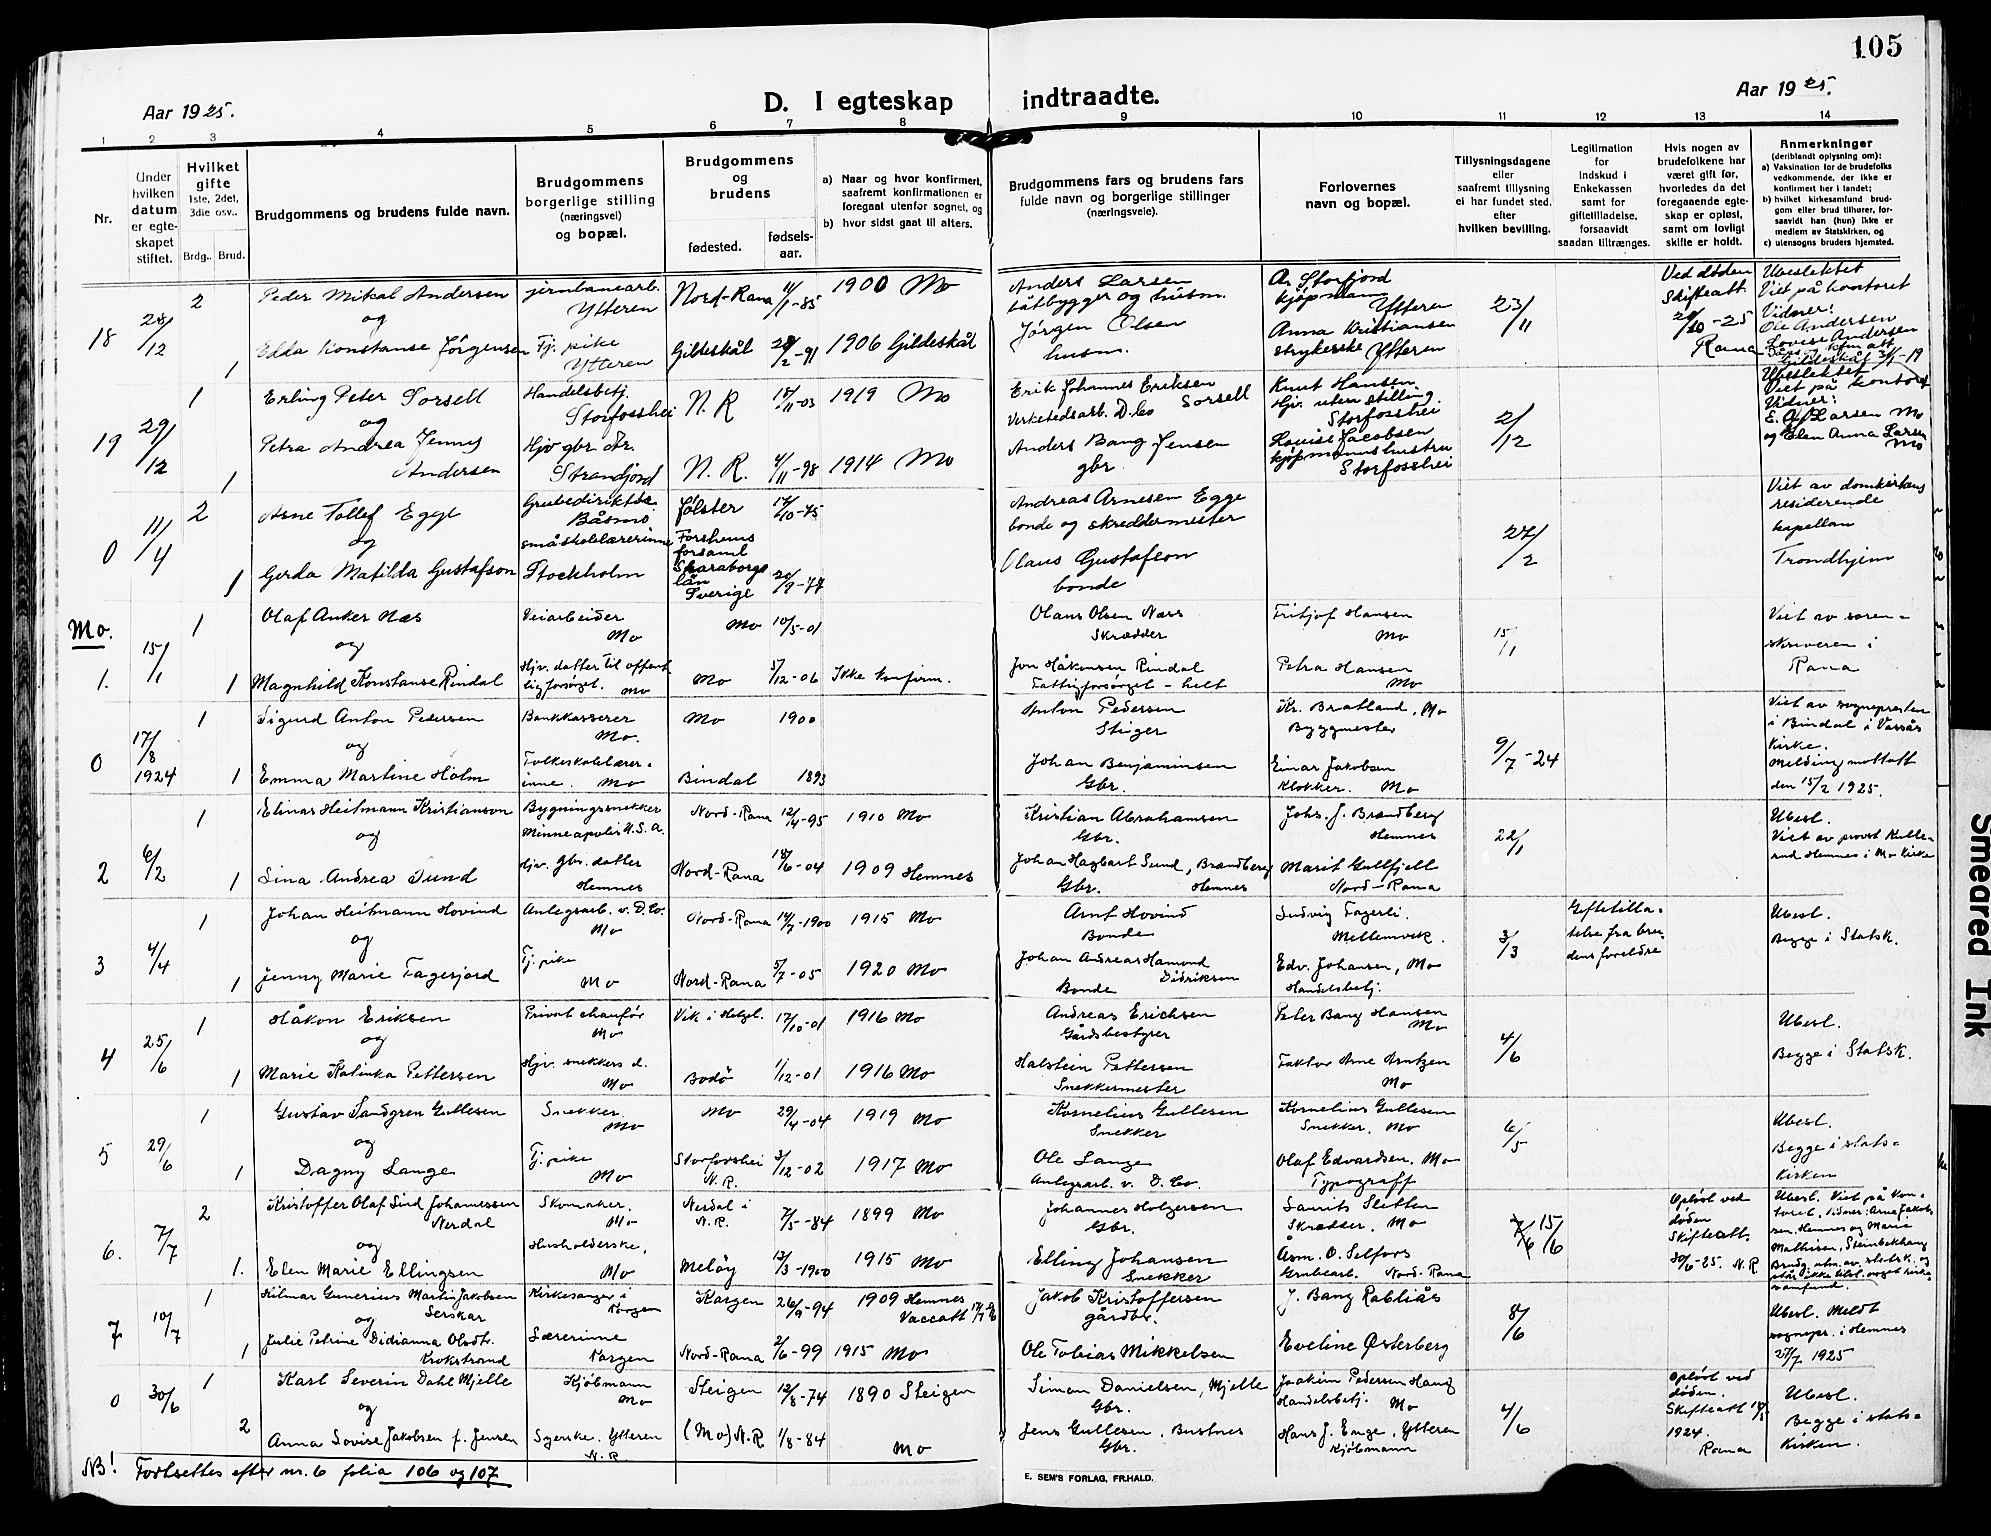 105
Aar 1925.
D. I egteskap indtraadte.
Aar 1925.
1 2 3 4 5 6 7 8 9 10 11 12 13 14
Nr.
Under hvilken datum er egteskapet stiftet.
Hvilket gifte 1ste, 2det, 3die osv..
Brdg.. Brud.
Brudgommens og brudens fulde navn.
Brudgommens borgerlige stilling (næringsvei) og bopæl.
Brudgommens og brudens
fødested.
fødselsaar.
a) Naar og hvor konfirmert, saafremt konfirmationen er foregaat utenfor sognet, og
b) hvor sidst gaat til alters.
Brudgommens fars og brudens fars fulde navn og borgerlige stillinger (næringsveie).
Forlovernes navn og bopæl.
Tillysningsdagene eller saafremt tillysning ei har fundet sted. efter hvilken bevilling.
Legitimation for Indskud i Enkekassen samt for giftetilladelse, forsaavidt saadan tiltrænges.
Hvis nogen av brudefolkene har været gift før, hvorledes da det foregaaende egteskap er opløst, samt om lovligt skifte er holdt.
Anmerkninger (deriblandt oplysning om):
a) Vaksination for de brudefolks vedkommende, der ikke er konfirmert her i landet;
b) hvilket kirkesamfund brudgom eller brud tilhører, forsaavidt han (hun) ikke er medlem av Statskirken, og
c) utensogns bruders hjemsted.
18 28/12 2 Peder Mikal Andersen jernbanearb. Ytteren Nord-Rana 11/1-85 1900 Mo
og
1 Edda Konstanse Jørgensen Tj. pike Ytteren Gildeskål 28/2-91 1906 Gildeskål
Anders Larsen båtbygger og husm.
Jørgen Olsen husm.
A. Storfjord kjøpmann Ytteren
Anna Kristiansen strykerske Ytteren
23/11
Ved døden Skifteatt. 20/10-25 Rana
Ubeslektet Viet på kontoret Vidner: Ole Andersen Lovise Andersen
Gildeskål
19 29/12 1 Erling Peter Sorsell Handelsbetj. Storfosshei N. R 18/11-03 1919 Mo
og
1 Petra Andrea Jenny Andersen Hjv gbr. dtr. Strandjord N. R. 4/11-98 1914 Mo
Erik Johannes Eriksen Sorsell Verkstedsarb. D. Co
Anders Bang Jensen gbr.
Knut Hansen. Hjv. uten stilling. Storfosshei
Louise Jacobsen kjøpmannshustru Storfosshei
2/12
Ubeslektet Viet på kontoret Vidner: E. Larsen Mo og Elen Anna Larsen Mo
0 11/4 2 Arne Tollef Egge Grubedirektør Båsmo Jølster 14/10-75
og
1 Gerda Matilda Gustafson småskolelærerinne Stockholm Forshems forsaml Skaraborgs län Sverige 20/9-77
Andreas Arnesen Egge bonde og skreddermester
Olaus Gustafson bonde
27/2
Viet av domkirkens residerende kapellan Trondhjem
Mo.
1. 15/1 1 Olaf Anker Næs Veiarbeider Mo Mo 10/5-01
og
1 Magnhild Konstanse Rindal Hjv. datter til offentlig forsørget. Mo Mo 5/12-06 Ikke konfirm.
Olaus Olsen Næss Skrædder
Jon Håkonsen Rindal Fattigforsørget - helt
Fritjof Hansen Mo
Petra Hansen Mo
15/1
Viet av sorenskriveren i Rana
0 17/8 1924 1 Sigurd Anton Pedersen Bankkasserer Mo. Mo 1900
og
1 Emma Martine Holm Folkeskolelærerinne. Mo Bindal 1893
Anton Pedersen Stiger
Johan Benjaminsen Gbr.
Kr. Bratland, Mo Byggmester
Einar Jakobsen Klokker. Mo
9/7-24
Viet av sognepresten i Bindal i Vassås Kirke. Melding mottatt den 15/2 1925.
2 6/2 1 Elinar Heitmann Kristianson Bygningssnekker Minneapolis U.S.A. Nord-Rana 12/4-95 1910 Mo
og
1 Lina Andrea Sund Hjv. gbr. datter Hemnes Nord-Rana 18/6-04 1909 Hemnes
Kristian Abrahamsen Gbr.
Johan Hagbart Sund, Brændberg Gbr. Hemnes
Johs. J. Brændberg Hemnes
Marit Gullfjell Nord-Rana
22/1
Ubesl. Viet av provst Hemnes i Mo Kirke
3 4/4 1 Johan Heitmann Hovind Anlegsarb. v. D. Co. Mo Nord-Rana 14/7-1900 1915 Mo
og
1 Jenny Marie Fagerjord Tj. pike Mo Nord-Rana 5/7-05 1920 Mo
Arnt Hovind Bonde
Johan Andreas Hamond Didriksen Bonde
Ludvig Fagerli. Mellemvek.
Edv. Johansen, Mo Handelsbetj.
3/3
Giftetilladelse fra brudens foreldre
Ubesl. Begge i Statsk.
4 25/6 1 Håkon Eriksen Privat chaufør Mo Vik i Helgel. 17/10-01 1916 Mo
og
1 Marie Katinka Pettersen Hjv. snekkers d. Mo Bodø 1/12-01 1916 Mo
Andreas Erichsen Gårdsbestyrer
Halstein Pettersen Snekkermester
Peter Bang Hansen Mo
Faktor Arne Arntzen Mo
4/6
Ubesl. Begge i Statsk.
5 29/6 1 Gustav Sandgren Gullesen Snekker. Mo Mo 29/4-04 1919 Mo
og
1 Dagny Lange Tj. pike Mo Storfosshei N. R. 3/12-02 1917 Mo
Kornelius Gullesen Snekker
Ole Lange Anlegsarb. v. D. Co.
Kornelius Gullesen Snekker. Mo
Olaf Edvardsen, Mo Typograff
6/5
Ubesl. Begge i statskirken
6. 7/7 2 Kristoffer Olaf Sind Johannessen Nerdal Skomaker. Mo Nerdal i N. R. 7/5-84 1899 Mo
og
1. Elen Marie Ellingsen Husholderske. Mo Meløy 13/3-1900 1915 Mo
Johannes Holgersen Gbr.
Elling Johansen Snekker
Laurits Sletten Skrædder, Mo
Åsm. O. Selfors Grubearb. Nord-Rana
7/6 15/6
Opløst ved døden Skifteatt. 30/6-25. N. R
Ubesl. Viet på kontoret. Vidner: Arne Jakobsen, Hemnes og Marie Mathisen, Steinbekkhaug Brudg. utm. av statsk. og står ikke tilsl. noget kirkesamfund.
7 10/7 1 Hilmar Gunerius Martin Jakobsen Serskar Kirkesanger i Korgen Korgen 26/9-94 1909 Hemnes Vaccatt
og
1 Julie Petrine Didianna Olsdtr. Krokstrand Lærerinne Korgen Nord-Rana 2/6-99 1915 Mo
Jakob Kristoffersen gårdbr.
Ole Tobias Mikkelsen
J. Bang Rabliås
Eveline Østerberg
8/6
Ubesl. Meldt sognepr. i Hemnes 27/7 1925
0 30/6 1 Karl Severin Dahl Mjelle Kjøbmann Mo Steigen 12/8-74 1890 Steigen
og
2 Anna Lovise Jakobsen f. Jensen Syerske. Ytteren N. R. (Mo) N. R 1/8-84 Mo
Simon Danielsen, Mjelle Gbr.
Jens Gullesen, Bustnes Gbr.
Joakim Pedersen Haug Handelsbetj. Mo
Hans J. Enge, Ytteren Kjøbmann
4/6
Opløst ved døden. Skifteatt 1924. Rana
Ubesl. Begge i statskirken.
NB! Fortsettes efter nr. 6 folia 106 og 107
E. SEM'S FORLAG, FR.HALD.
Smeared Ink